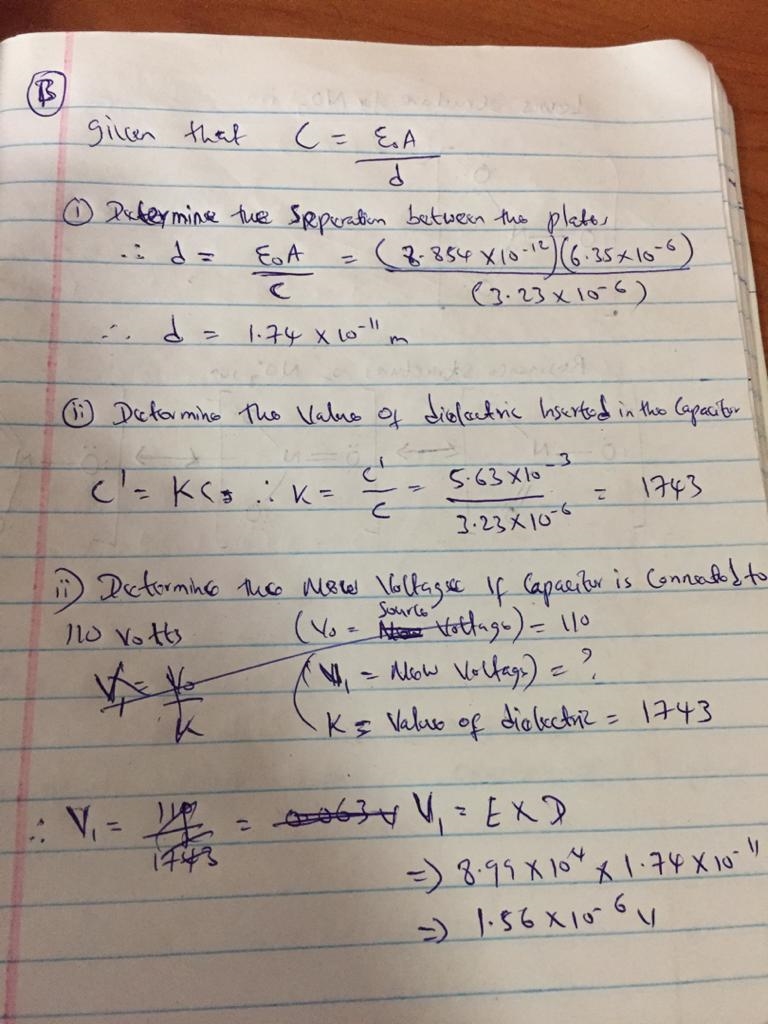 B
Given that C = ε₀A / d
(i) Determine the Separation between the plates
∴ d = ε₀A / C = (8.854 × 10⁻¹²)(6.35 × 10⁻⁶) / (3.23 × 10⁻⁶)
∴ d = 1.74 × 10⁻¹¹ m
(ii) Determine the Value of dielectric Inserted in the Capacitor
C' = KC ∴ K = C' / C = 5.63 × 10⁻³ / 3.23 × 10⁻⁶ = 1743
ii) Determine the New Voltage If Capacitor is Connected to
110 Volts (V₀ = Source Voltage) = 110
V₁ = V₀ / K (V₁ = New Voltage) = ?
K = Value of dielectric = 1743
∴ V₁ = 110 / 1743 = 0.063 V V₁ = E × D
⇒ 8.99 × 10⁴ × 1.74 × 10⁻¹¹
⇒ 1.56 × 10⁻⁶ V